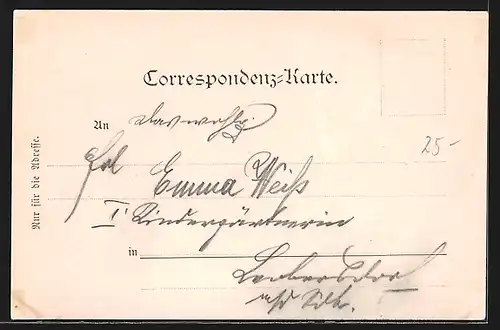 Correspondenz-Karte.
An
Nur für die Adresse.
25-
Frl
Emma Weiß
I. Kindergärtnerin
in
Leobersdorf